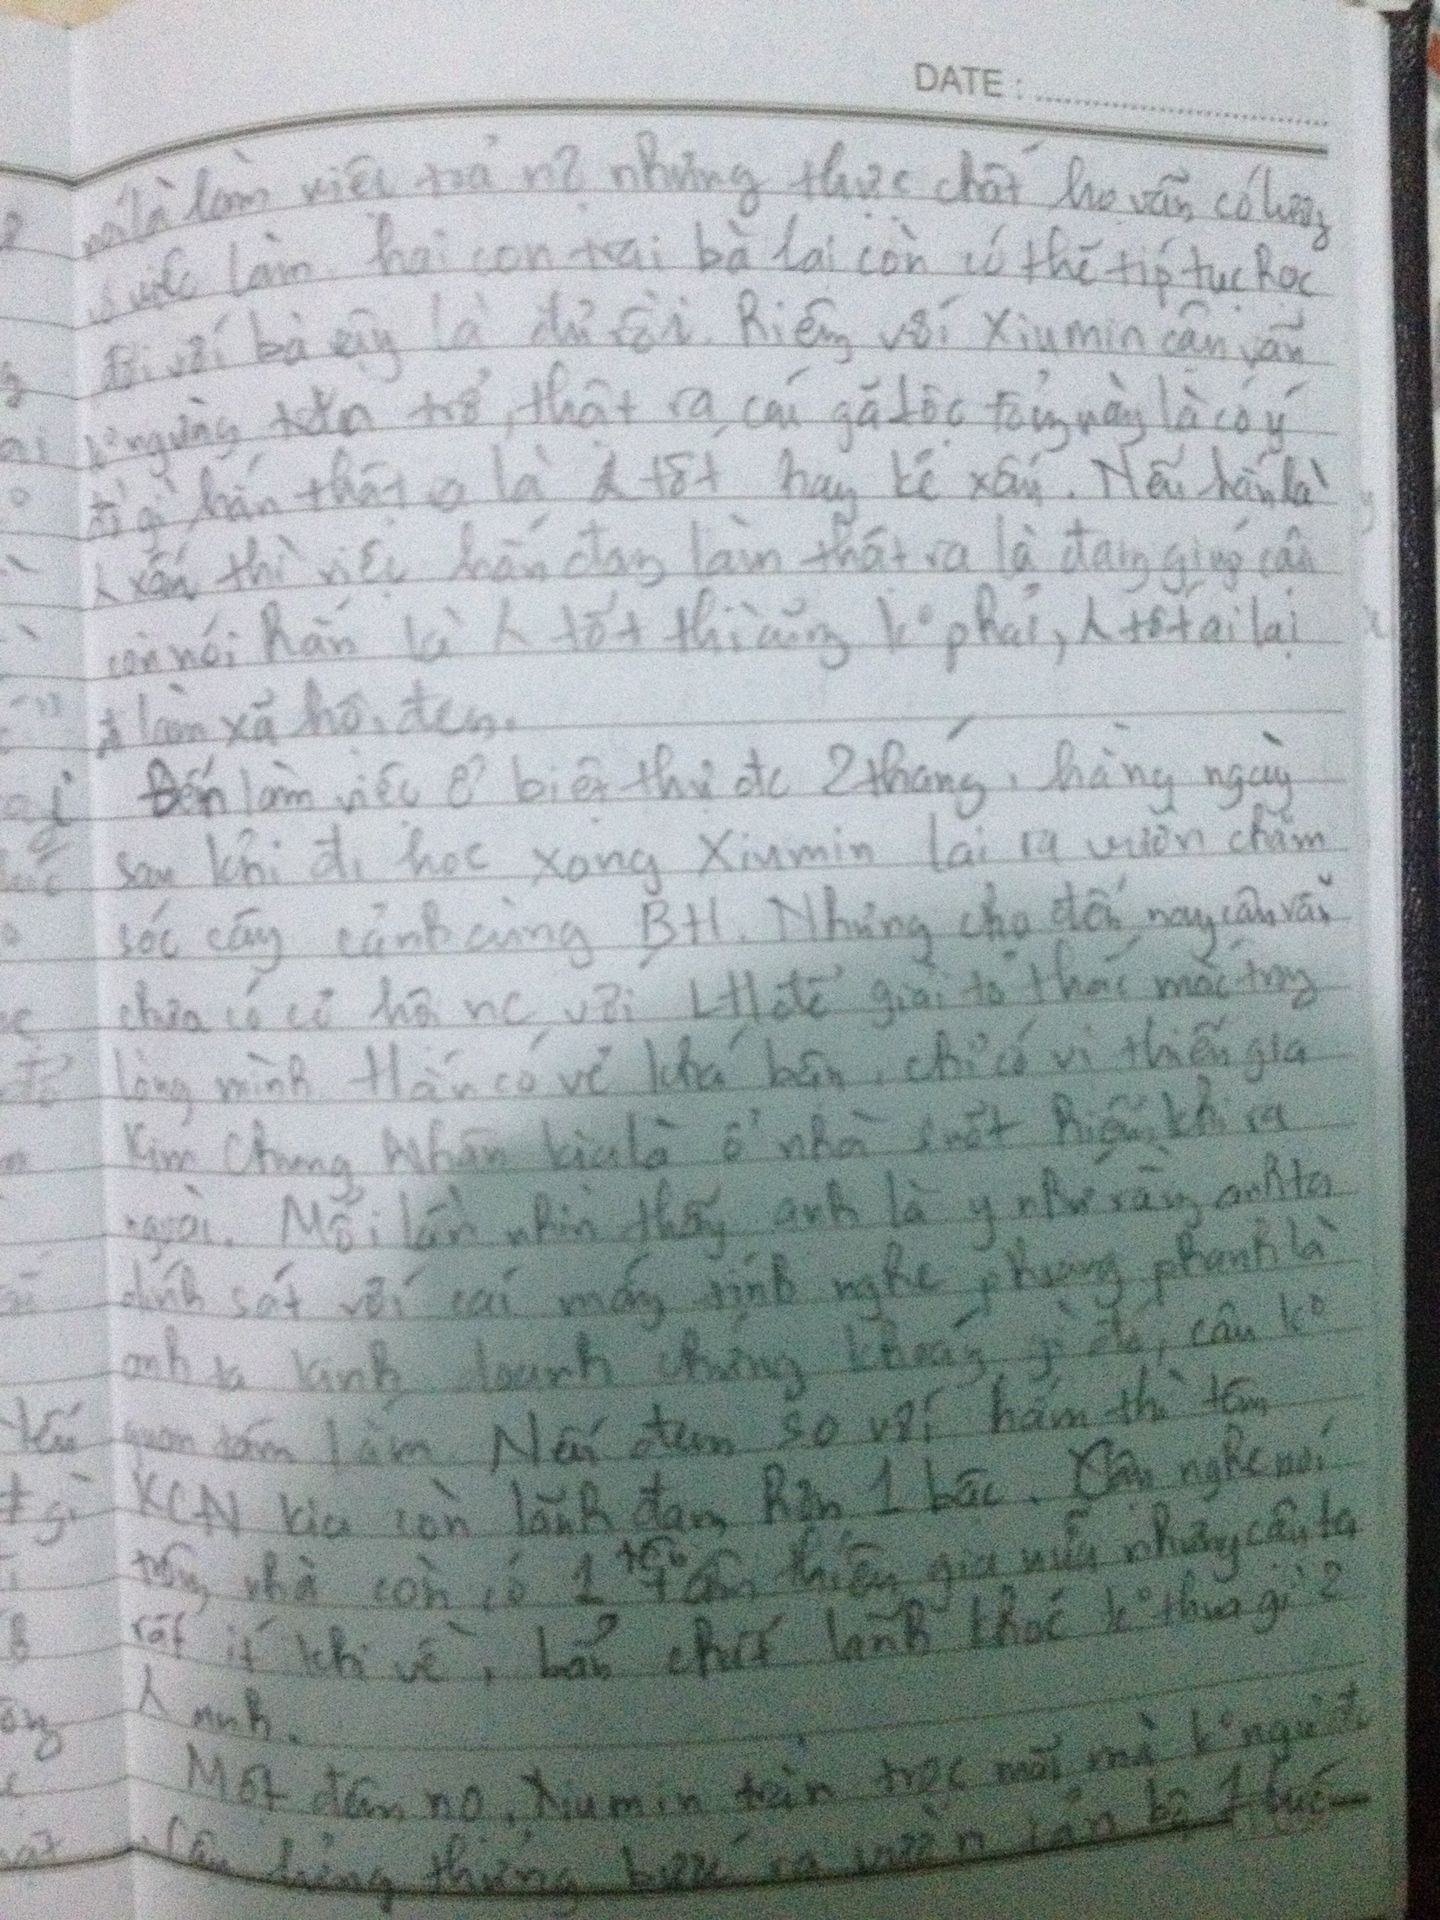 DATE :
nói là làm việc trả nợ nhưng thực chất họ vẫn có lương
có việc làm. hai con trai bà lại còn có thể tiếp tục học
đối với bà vậy là đủ rồi. Riêng với Xiumin cậu vẫn
ko ngừng trăn trở, thật ra cái gã tóc này là có ý
đồ gì hắn thật ra là tốt hay kẻ xấu. Nếu hắn là
xấu thì việc hắn đang làm thất ra là đang giúp cậu
còn nói hắn là tốt thì cũng ko phải, tốt ai lại
đi làm xã hội đen.
Đến làm việc ở biệt thự đc 2 tháng, hàng ngày
sau khi đi học xong Xiumin lại ra vườn chăm
sóc cây cảnh cùng BH. Nhưng cho đến nay cậu vẫn
chưa có cơ hội nc với LH để giải tỏ thắc mắc trong
lòng mình Hắn có vẻ khá bận, chỉ có vị thiếu gia
Kim Chung Nhân kia là ở nhà suốt hiếm khi ra
ngoài. Mỗi lần nhìn thấy anh là y như rằng anh ta
dính sát với cái máy tính nghe phong phanh là
anh ta kinh doanh chứng khoán gì đó, cậu ko
quan tâm lắm Nếu đem so với hắn thì tên
KCN kia còn lãnh đạm hơn 1 bậc. Cậu nghe nói
trong nhà còn có 1 thiếu gia nữa nhưng cậu ta
rất ít khi về, bản chất lãnh khốc ko thua gì 2
anh.
Một đêm nọ, Xiumin trằn trọc mãi mà ko ngủ đc
Cậu bước ra vườn tản bộ 1